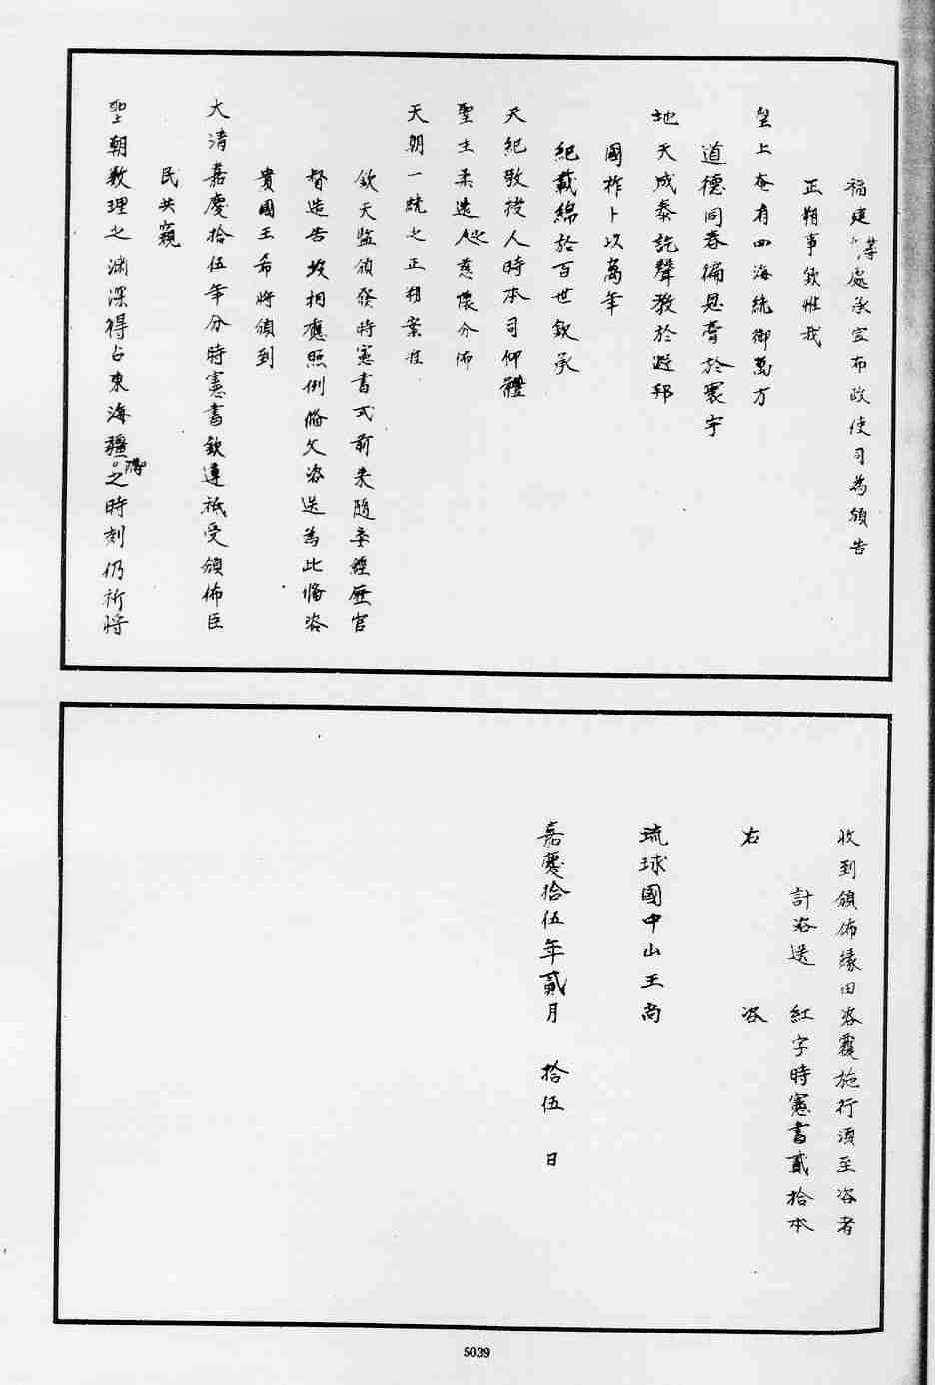 福建等處承宣布政使司為頒告
正朔事欽惟我
皇上奄有四海統御萬方
道德同春徧恩膏於寰宇
地天成泰訖聲教於遐邦
國祚卜以萬年
紀載綿於百世欽承
天紀敬授人時本司仰體
聖主柔遠之慈懷分佈
天朝一統之正朔案准
欽天監頒發時憲書式前來隨委經歷官
督造告竣相應照例俻文咨送為此俻咨
貴國王希將頒到
大清嘉慶拾伍年分時憲書欽遵祗受頒佈臣
民共窺
聖朝敷理之淵深得占東海疆之時刻仍祈將
收到頒佈緣由咨覆施行須至咨者
計咨送 紅字時憲書貳拾本
右 咨
琉球國中山王尚
嘉慶拾伍年貳月 拾伍 日
5039